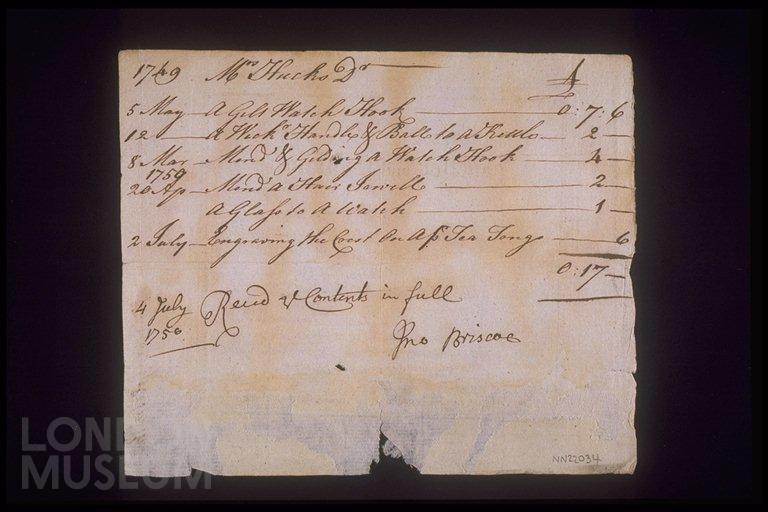 1749 Mrs Hucks Dr
5 May A Gilt Watch Hook 0:7:6
12 a Wickr Handle & Ball to a Kettle 2
8 Mar Mend & Gilding a Watch Hook 4
1750
20 Ap Mend a Hair Jewell 2
A Glass to A Watch 1
2 July Engraving the Crest On A pr Tea Tongs 6
0:17
4 July Reced ye Contents in full
1750
Jno Briscoe
LONDON
MUSEUM
NN22034